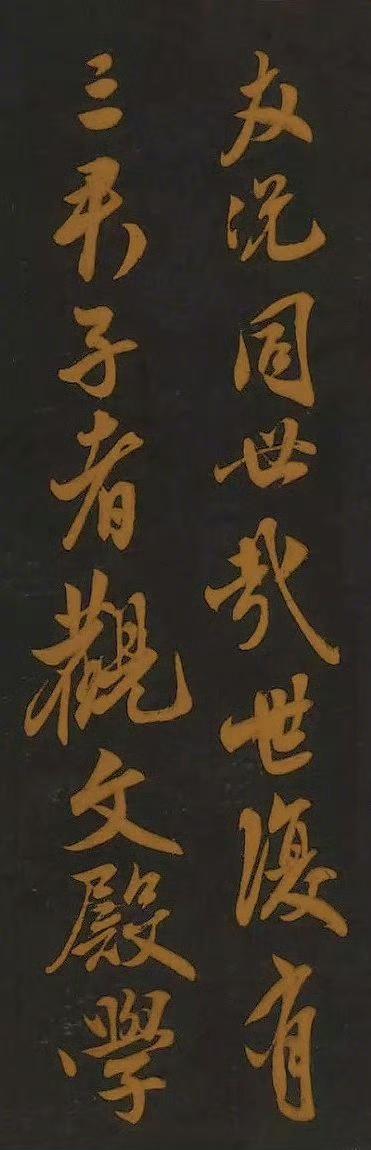 友况同世哉世復有
三君子者觀文殿學